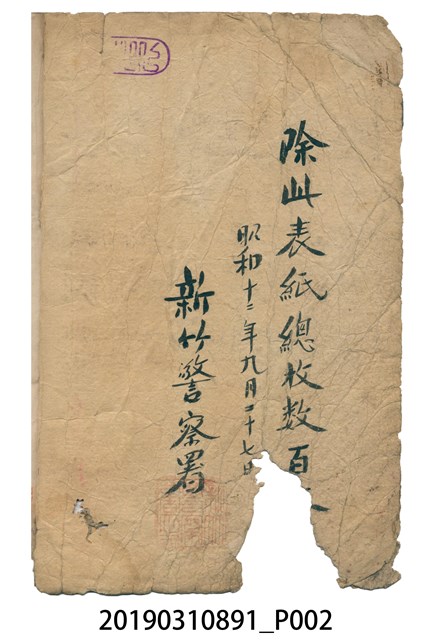 除此表紙總枚数百
昭和十二年九月二十七日
新竹警察署
20190310891_P002